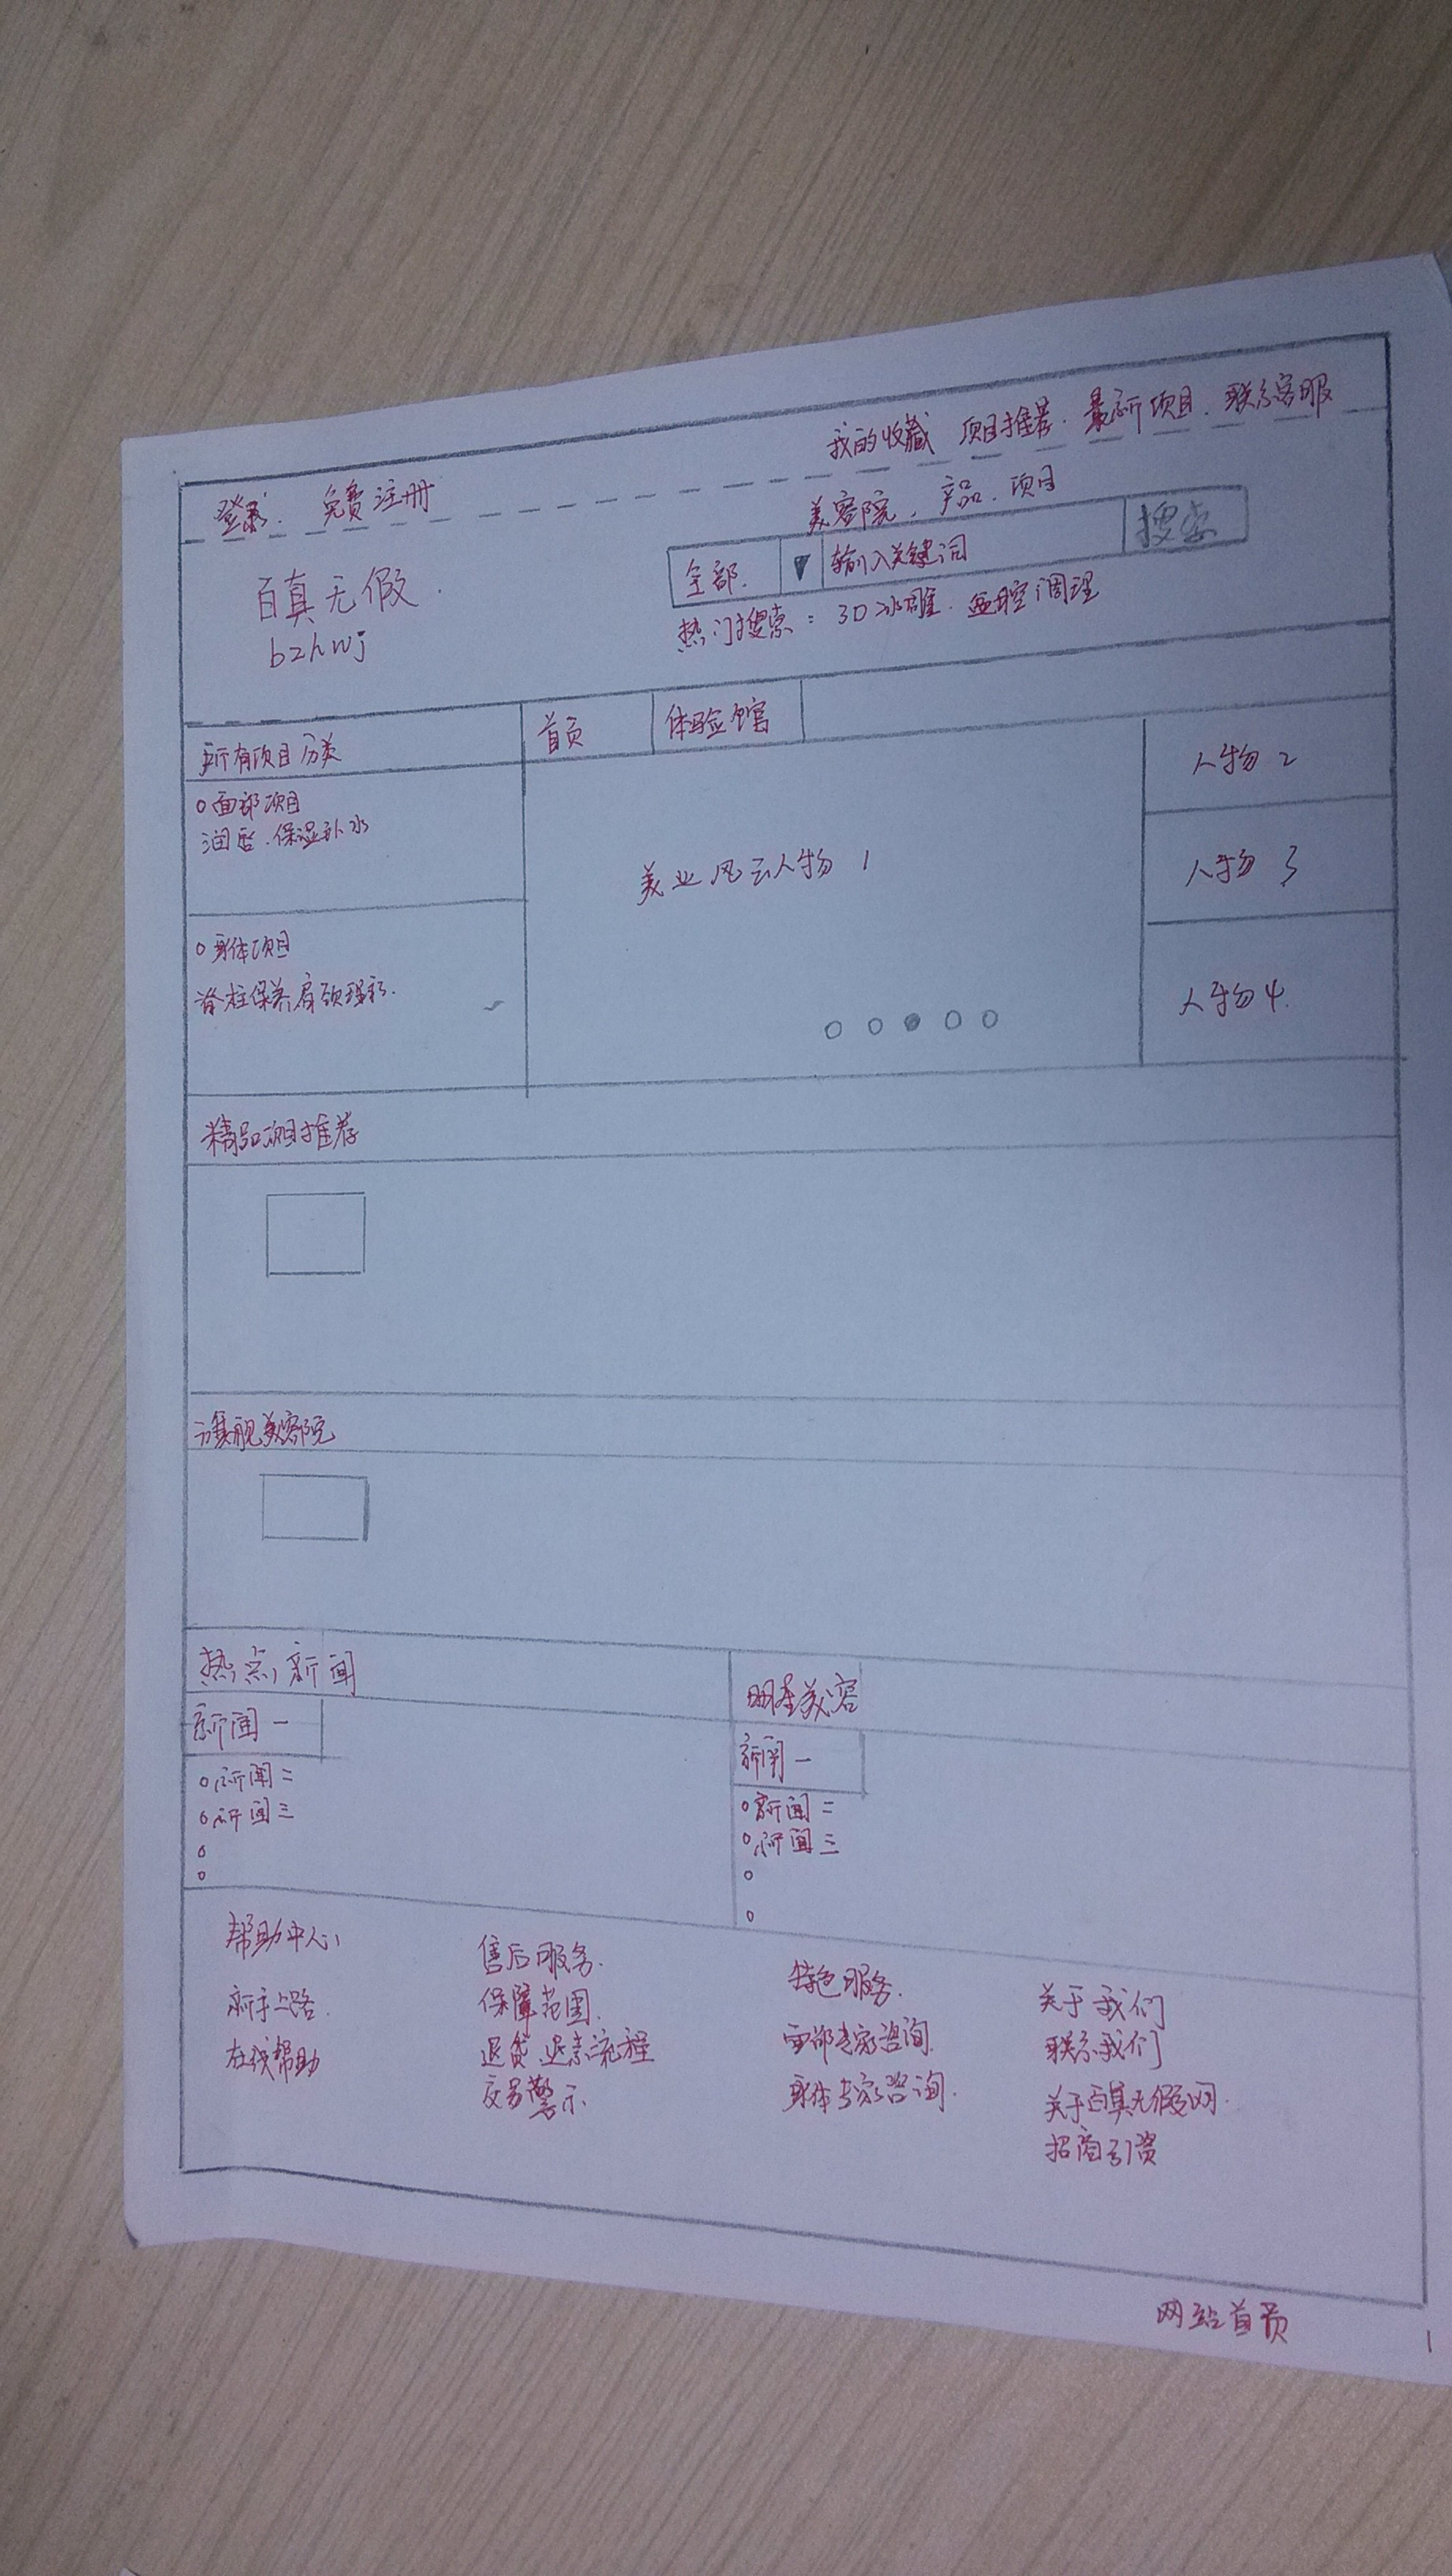 登录. 免费注册
我的收藏 项目推荐. 最新项目. 联系客服
百真无假.
bzhwj
美容院, 产品. 项目
全部. ▼ 输入关键词 搜索
热门搜索: 3D冰雕. 盆腔调理
所有项目分类
首页 体验馆
面部项目
润唇.保湿补水
身体项目
脊柱保养肩颈理疗.
美业风云人物 1
人物 2
人物 3
人物 4.
精品项目推荐
旗舰美容院
热点新闻
新闻一
新闻二
新闻三
明星美容
新闻一
新闻二
新闻三
帮助中心
新手上路.
在线帮助
售后服务.
保障范围.
退货退款流程
交易警示
特色服务.
面部专家咨询.
身体专家咨询.
关于我们
联系我们
关于百真无假网.
招商引资
网站首页
1